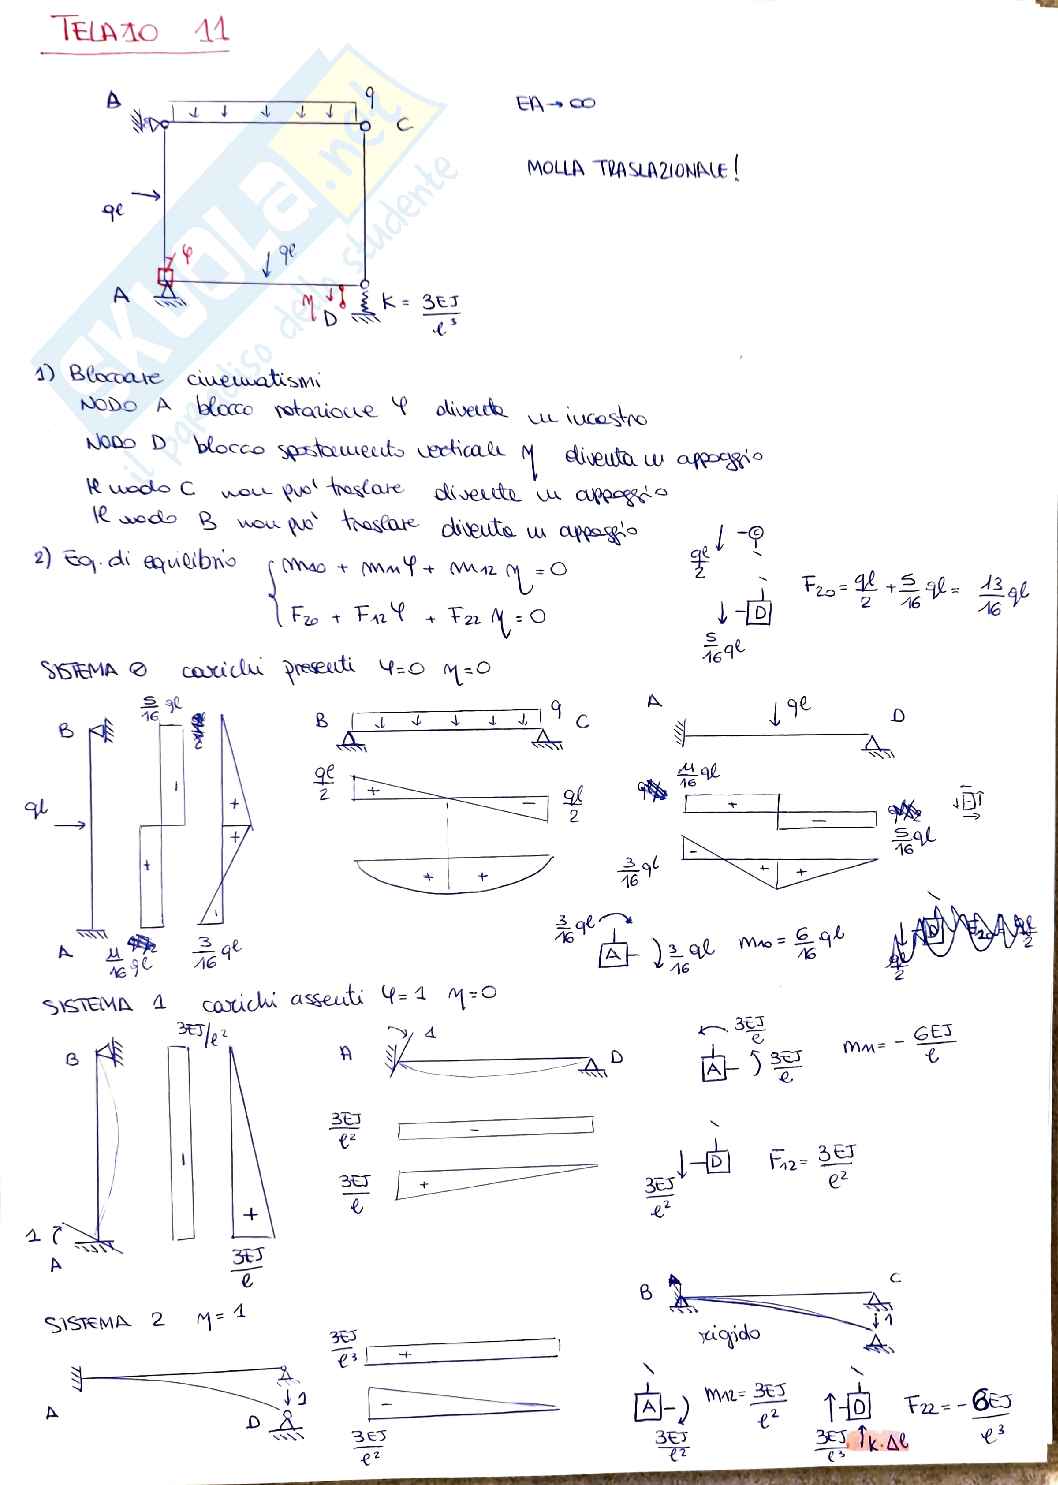 TELAIO 11
A
q
C
EA → ∞
MOLLA TRASLAZIONALE!
ql
φ
ql
A
η
D
K = 3EJ/l³
SKUOLA.net
il paradiso dello studente
1) Bloccare cinematismi
NODO A blocco rotazione φ diventa un incastro
NODO D blocco spostamento verticale η diventa un appoggio
Il nodo C non può traslare diventa un appoggio
Il nodo B non può traslare diventa un appoggio
2) Eq. di equilibrio { m10 + m11φ + m12 η = 0
F20 + F12φ + F22 η = 0
ql/2
C
D
5/16 ql
F20 = ql/2 + 5/16 ql = 13/16 ql
SISTEMA 0 carichi presenti φ=0 η=0
B
5/16 ql
ql
A
11/16 ql
3/16 ql
B
q
C
ql/2
ql/2
A
ql
D
11/16 ql
5/16 ql
3/16 ql
3/16 ql
A
3/16 ql
m10 = 6/16 ql
SISTEMA 1 carichi assenti φ=1 η=0
B
3EJ/l²
1
A
3EJ/l
A
1
D
3EJ/l²
3EJ/l
3EJ/l
A
3EJ/l
m11 = - 6EJ/l
3EJ/l²
D
F12 = 3EJ/l²
SISTEMA 2 η = 1
A
1
D
3EJ/l³
3EJ/l²
B
C
1
rigido
A
3EJ/l²
m12 = 3EJ/l²
D
3EJ/l³
K·Δl
F22 = - 6EJ/l³